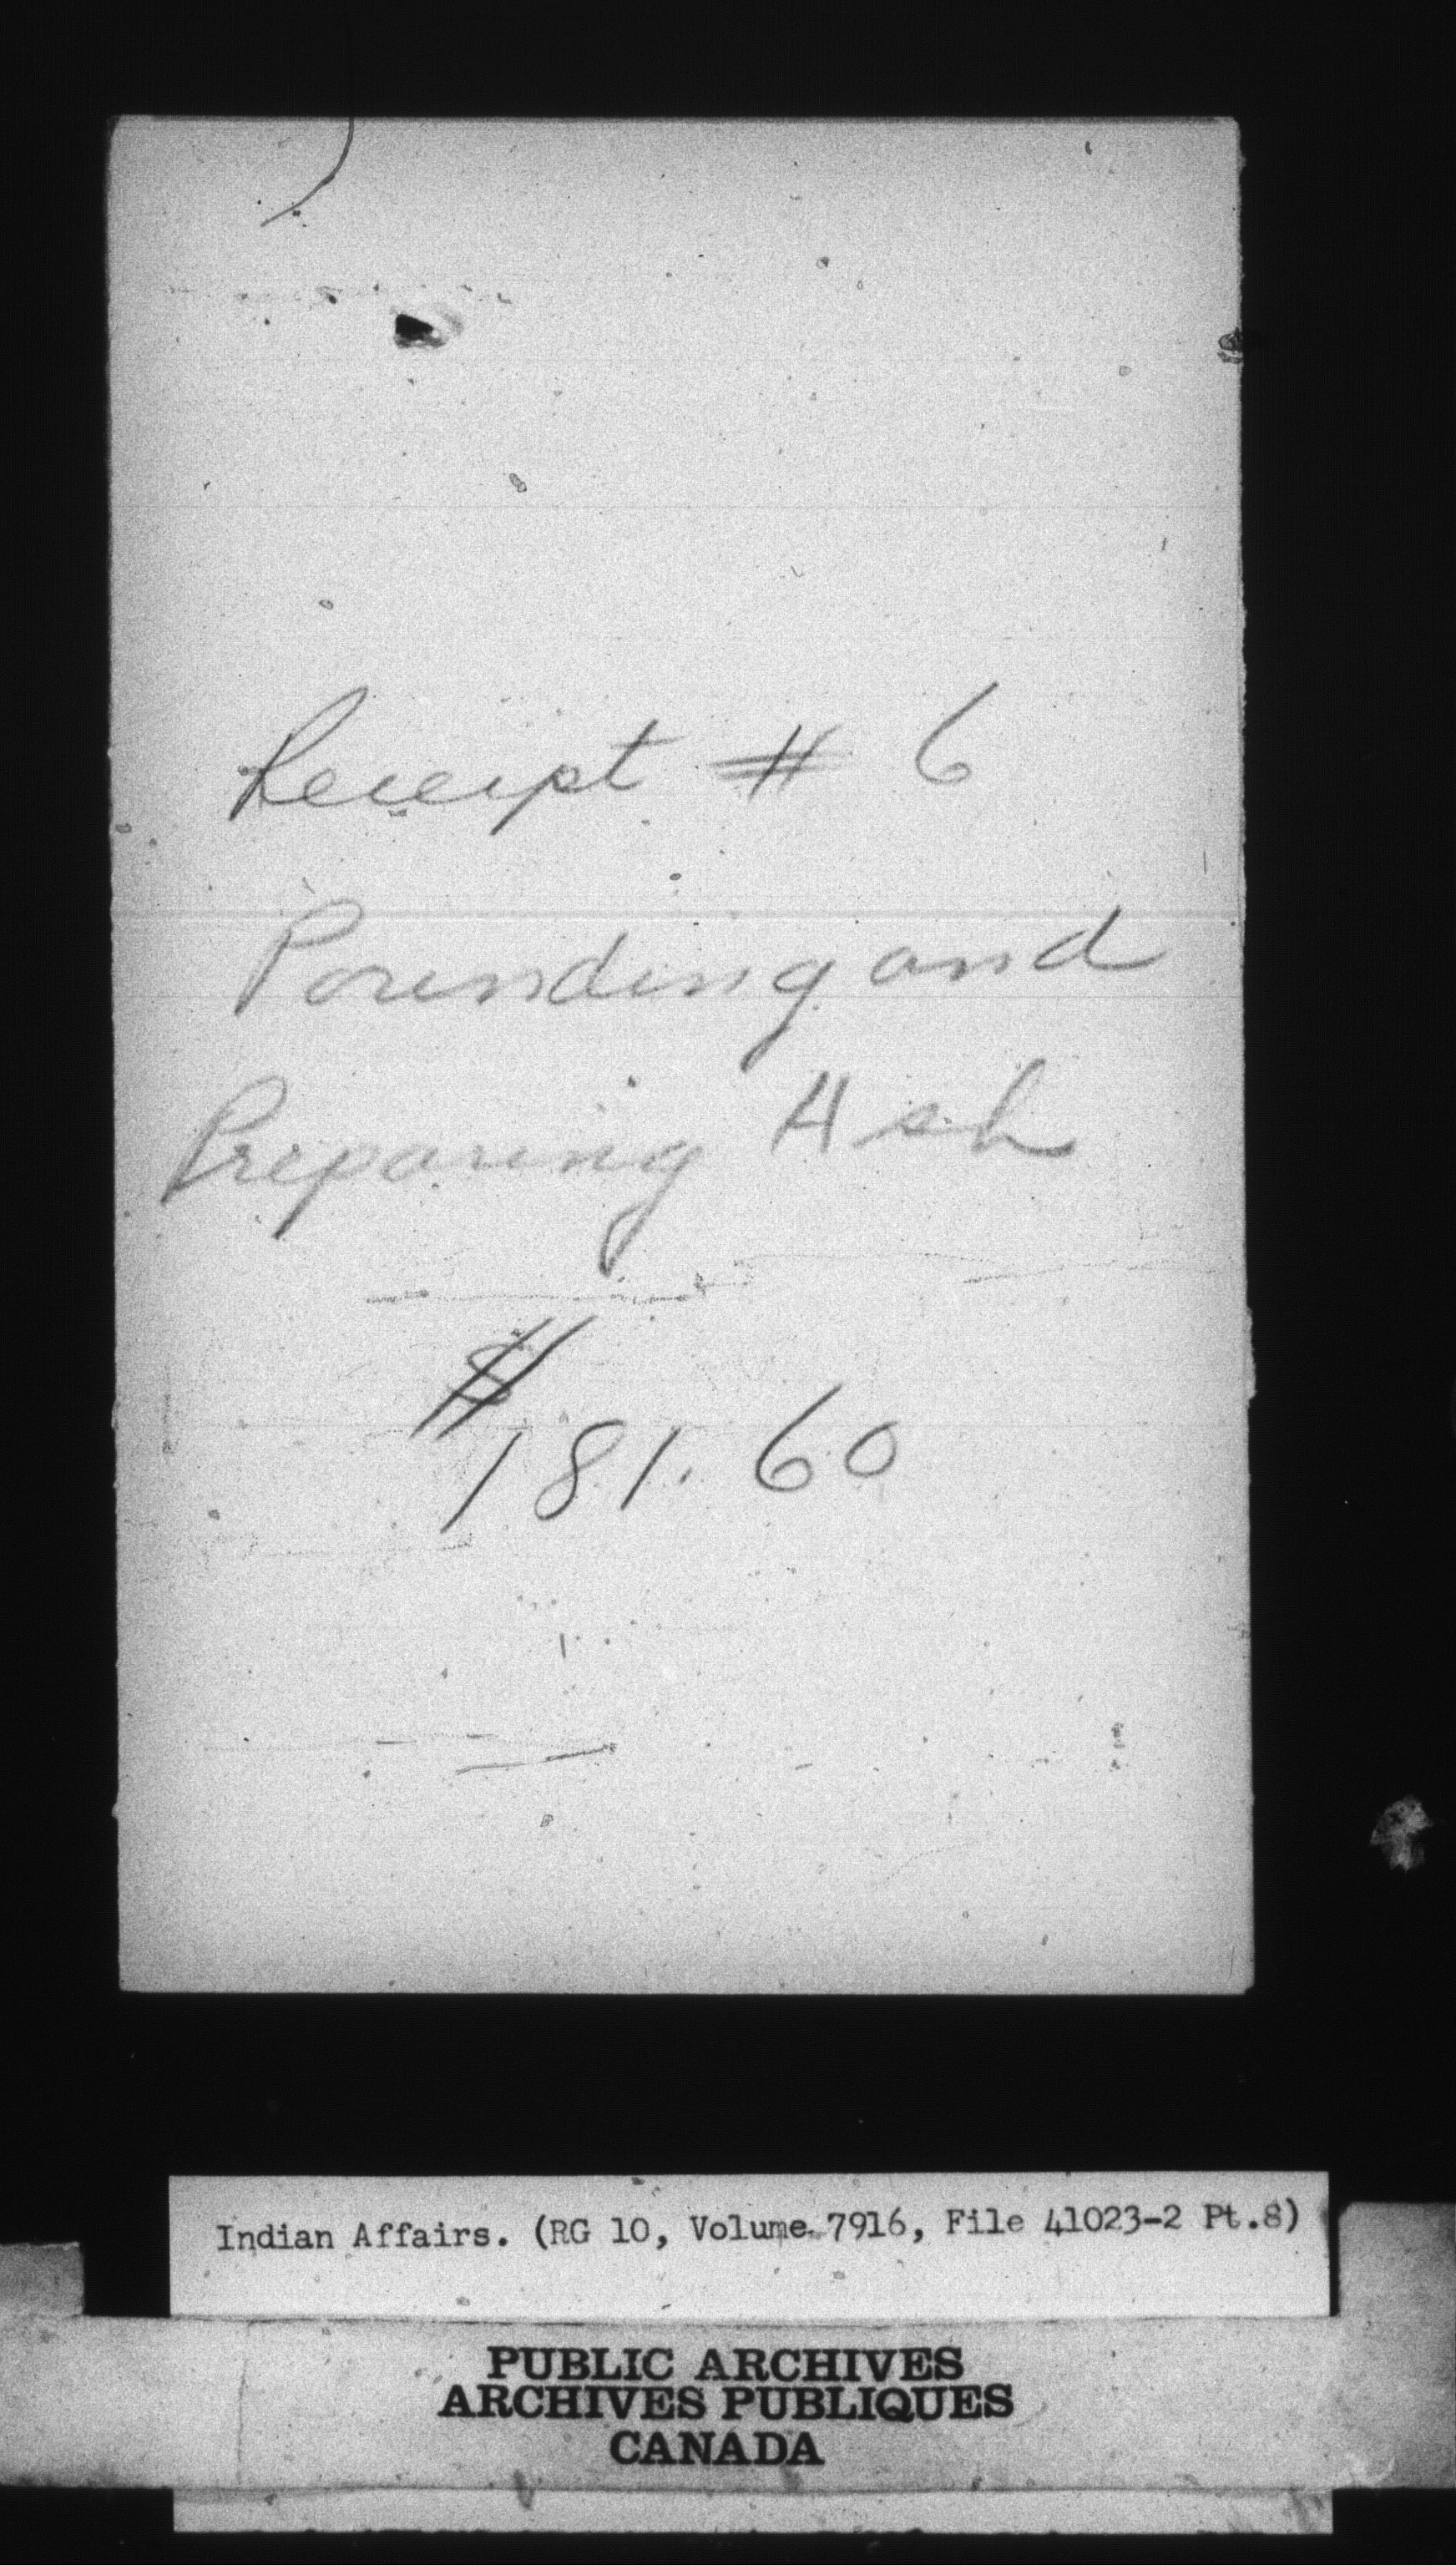 Receipt # 6
Pounding and
Preparing Ash
$
181.60
Indian Affairs. (RG 10, Volume 7916, File 41023-2 Pt.8)
PUBLIC ARCHIVES
ARCHIVES PUBLIQUES
CANADA